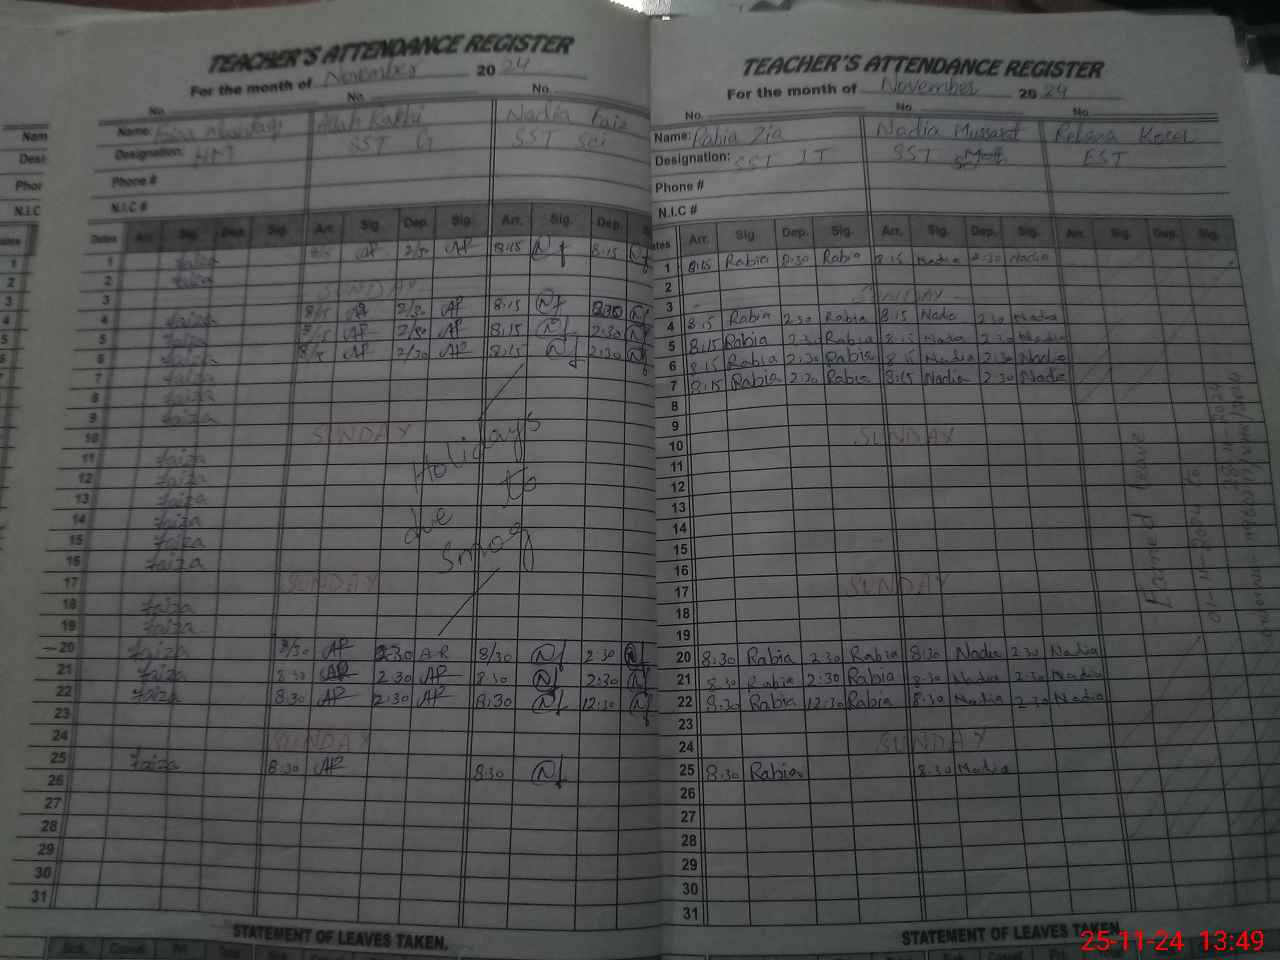 TEACHER'S ATTENDANCE REGISTER
For the month of November 2024
No. No. No.
Name: Allah Rakhi Nadia Faiz
Designation: SST G SST Sci
Phone #
N.I.C #
Dates Arr. Sig. Dep. Sig. Arr. Sig. Dep. Sig. Arr. Sig. Dep.
1 faiza AR 2/30 AR 8:15 Nf 8:15 Nf
2 faiza
3 SUNDAY
4 faiza 8/15 AR 2/30 AR 8:15 Nf 2:30 Nf
5 faiza 8/15 AR 2/30 AR 8:15 Nf 2:30 Nf
6 faiza 8/15 AR 2/30 AR 8:15 Nf 2:30 Nf
7 faiza
8 faiza
9 faiza
10 SUNDAY
11 faiza
12 faiza
13 faiza
14 faiza
15 faiza
16 faiza
17 SUNDAY
18 faiza
19 faiza
Holidays
due to
smog
20 faiza 8/30 AR 2:30 AR 8/30 Nf 2:30 Nf
21 faiza 8:30 AR 2:30 AR 8:30 Nf 2:30 Nf
22 faiza 8:30 AR 2:30 AR 8:30 Nf 12:30 Nf
23
24 SUNDAY
25 faiza 8:30 AR 8:30 Nf
26
27
28
29
30
31
STATEMENT OF LEAVES TAKEN.
TEACHER'S ATTENDANCE REGISTER
For the month of November 2024
No. No. No.
Name: Rabia Zia Nadia Mussarat
Designation: SST IT SST EST
Phone #
N.I.C #
Arr. Sig. Dep. Sig. Arr. Sig. Dep. Sig. Arr. Sig. Dep. Sig.
1 8:15 Rabia 2:30 Rabia 8:15 Nadia 2:30 Nadia
2
3 SUNDAY
4 8:15 Rabia 2:30 Rabia 8:15 Nadia 2:30 Nadia
5 8:15 Rabia 2:30 Rabia 8:15 Nadia 2:30 Nadia
6 8:15 Rabia 2:30 Rabia 8:15 Nadia 2:30 Nadia
7 8:15 Rabia 2:30 Rabia 8:15 Nadia 2:30 Nadia
8
9
10 SUNDAY
11
12
13
14
15
16
17 SUNDAY
18
19
20 8:30 Rabia 2:30 Rabia 8:30 Nadia 2:30 Nadia
21 8:30 Rabia 2:30 Rabia 8:30 Nadia 2:30 Nadia
22 8:30 Rabia 12:30 Rabia 8:30 Nadia 2:30 Nadia
23
24 SUNDAY
25 8:30 Rabia 8:30 Nadia
26
27
28
29
30
31
Earned leave
STATEMENT OF LEAVES TAKEN.
25-11-24 13:49